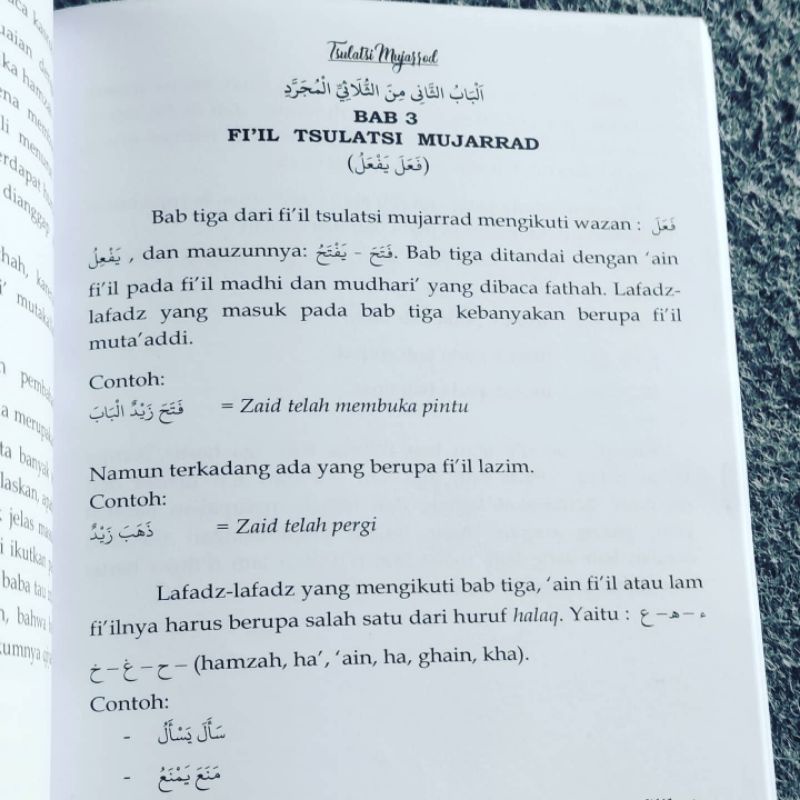 Tsulatsi Mujarrod
اَلْبَابُ الثَّانِى مِنَ الثُّلَاثِيِّ الْمُجَرَّدِ
BAB 3
FI'IL TSULATSI MUJARRAD
(فَعَلَ يَفْعَلُ)
Bab tiga dari fi'il tsulatsi mujarrad mengikuti wazan : فَعَلَ
يَفْعِلُ , dan mauzunnya: فَتَحَ - يَفْتَحُ. Bab tiga ditandai dengan 'ain
fi'il pada fi'il madhi dan mudhari' yang dibaca fathah. Lafadz-
lafadz yang masuk pada bab tiga kebanyakan berupa fi'il
muta'addi.
Contoh:
فَتَحَ زَيْدٌ الْبَابَ = Zaid telah membuka pintu
Namun terkadang ada yang berupa fi'il lazim.
Contoh:
ذَهَبَ زَيْدٌ = Zaid telah pergi
Lafadz-lafadz yang mengikuti bab tiga, 'ain fi'il atau lam
fi'ilnya harus berupa salah satu dari huruf halaq. Yaitu : ء – هـ – ع
– ح – غ – خ (hamzah, ha', 'ain, ha, ghain, kha).
Contoh:
- سَأَلَ يَسْأَلُ
- مَنَعَ يَمْنَعُ